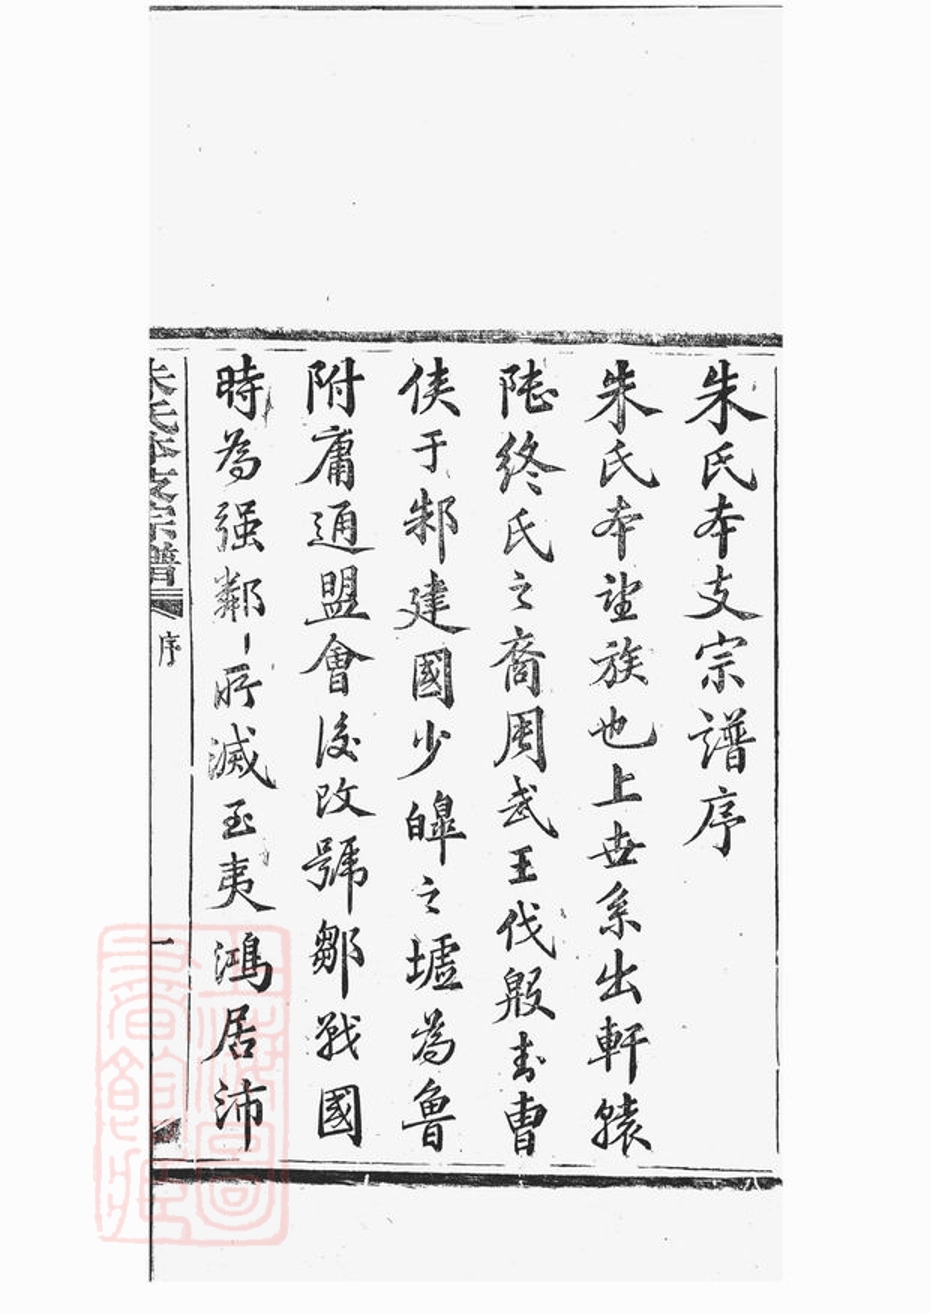 朱氏本支宗譜序
朱氏本望族也上世系出軒轅
陸終氏之裔周武王伐殷封曹
俠于邾建國少皞之墟為魯
附庸通盟會後改號鄒戰國
時為强鄰所滅至夷鴻居沛
朱氏本支宗譜
序
一
上海圖
書館藏